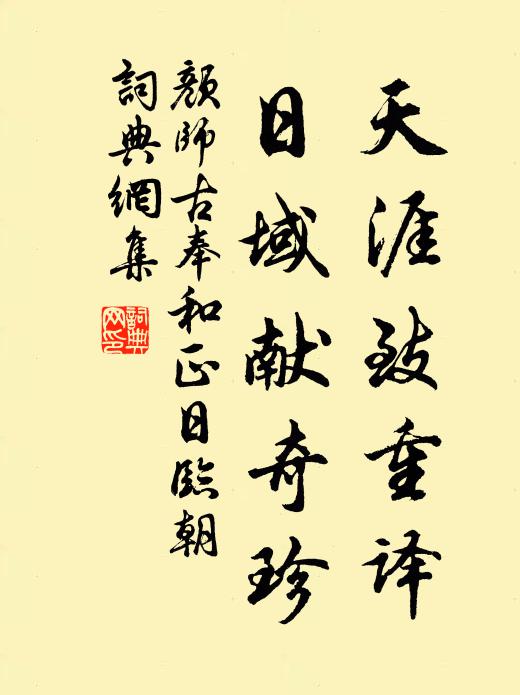 天涯致重译
日域献奇珍
颜師古奉和正日臨朝
詞典網集
詞典
网印